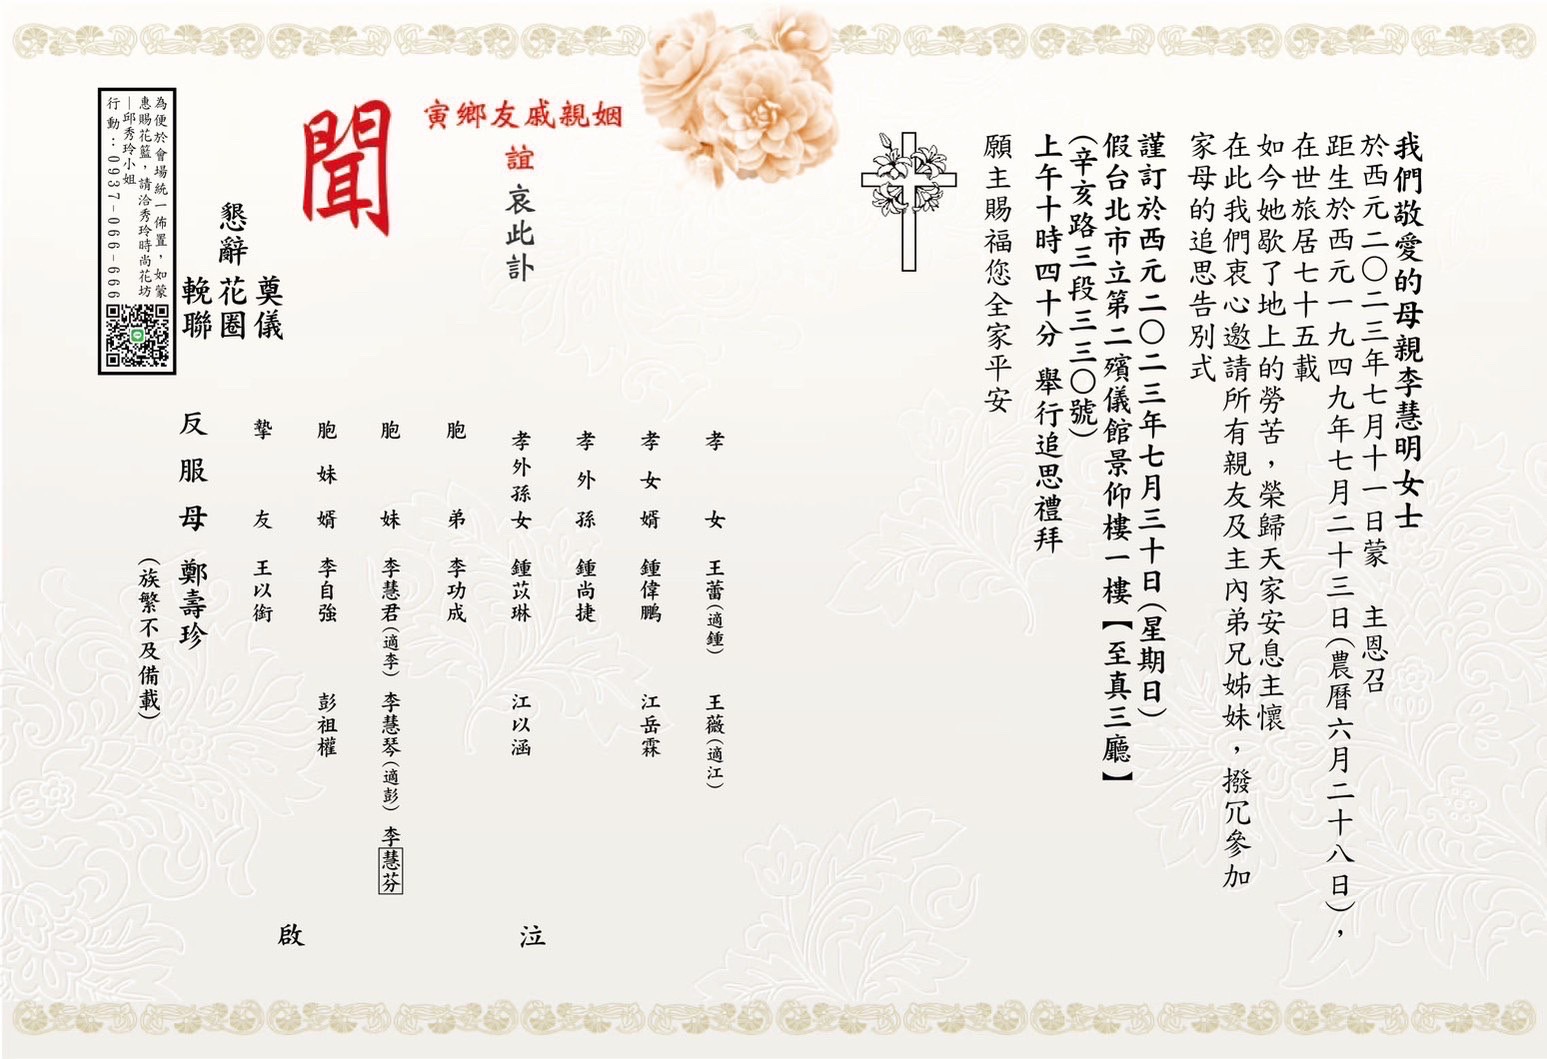 我們敬愛的母親李慧明女士
於西元二〇二三年七月十一日蒙　主恩召
距生於西元一九四九年七月二十三日(農曆六月二十八日)，
在世旅居七十五載
如今她歇了地上的勞苦，榮歸天家安息主懷
在此我們衷心邀請所有親友及主內弟兄姊妹，撥冗參加
家母的追思告別式
謹訂於西元二〇二三年七月三十日(星期日)
假台北市立第二殯儀館景仰樓一樓【至真三廳】
(辛亥路三段三三〇號)
上午十時四十分　舉行追思禮拜
願主賜福您全家平安
寅鄉友戚親姻
誼
哀此訃
聞
懇辭
奠儀
花圈
輓聯
為便於會場統一佈置，如蒙
惠賜花籃，請洽秀玲時尚花坊
—邱秀玲小姐
行動：0937-066-666
孝女　王蕾(適鍾)　王薇(適江)
孝女婿　鍾偉鵬　江岳霖
孝外孫　鍾尚捷
孝外孫女　鍾苡琳　江以涵
胞弟　李功成
胞妹　李慧君(適李)　李慧琴(適彭)　李慧芬
胞妹婿　李自強　彭祖權
摯友　王以銜
反服母　鄭壽珍
(族繁不及備載)
泣
啟